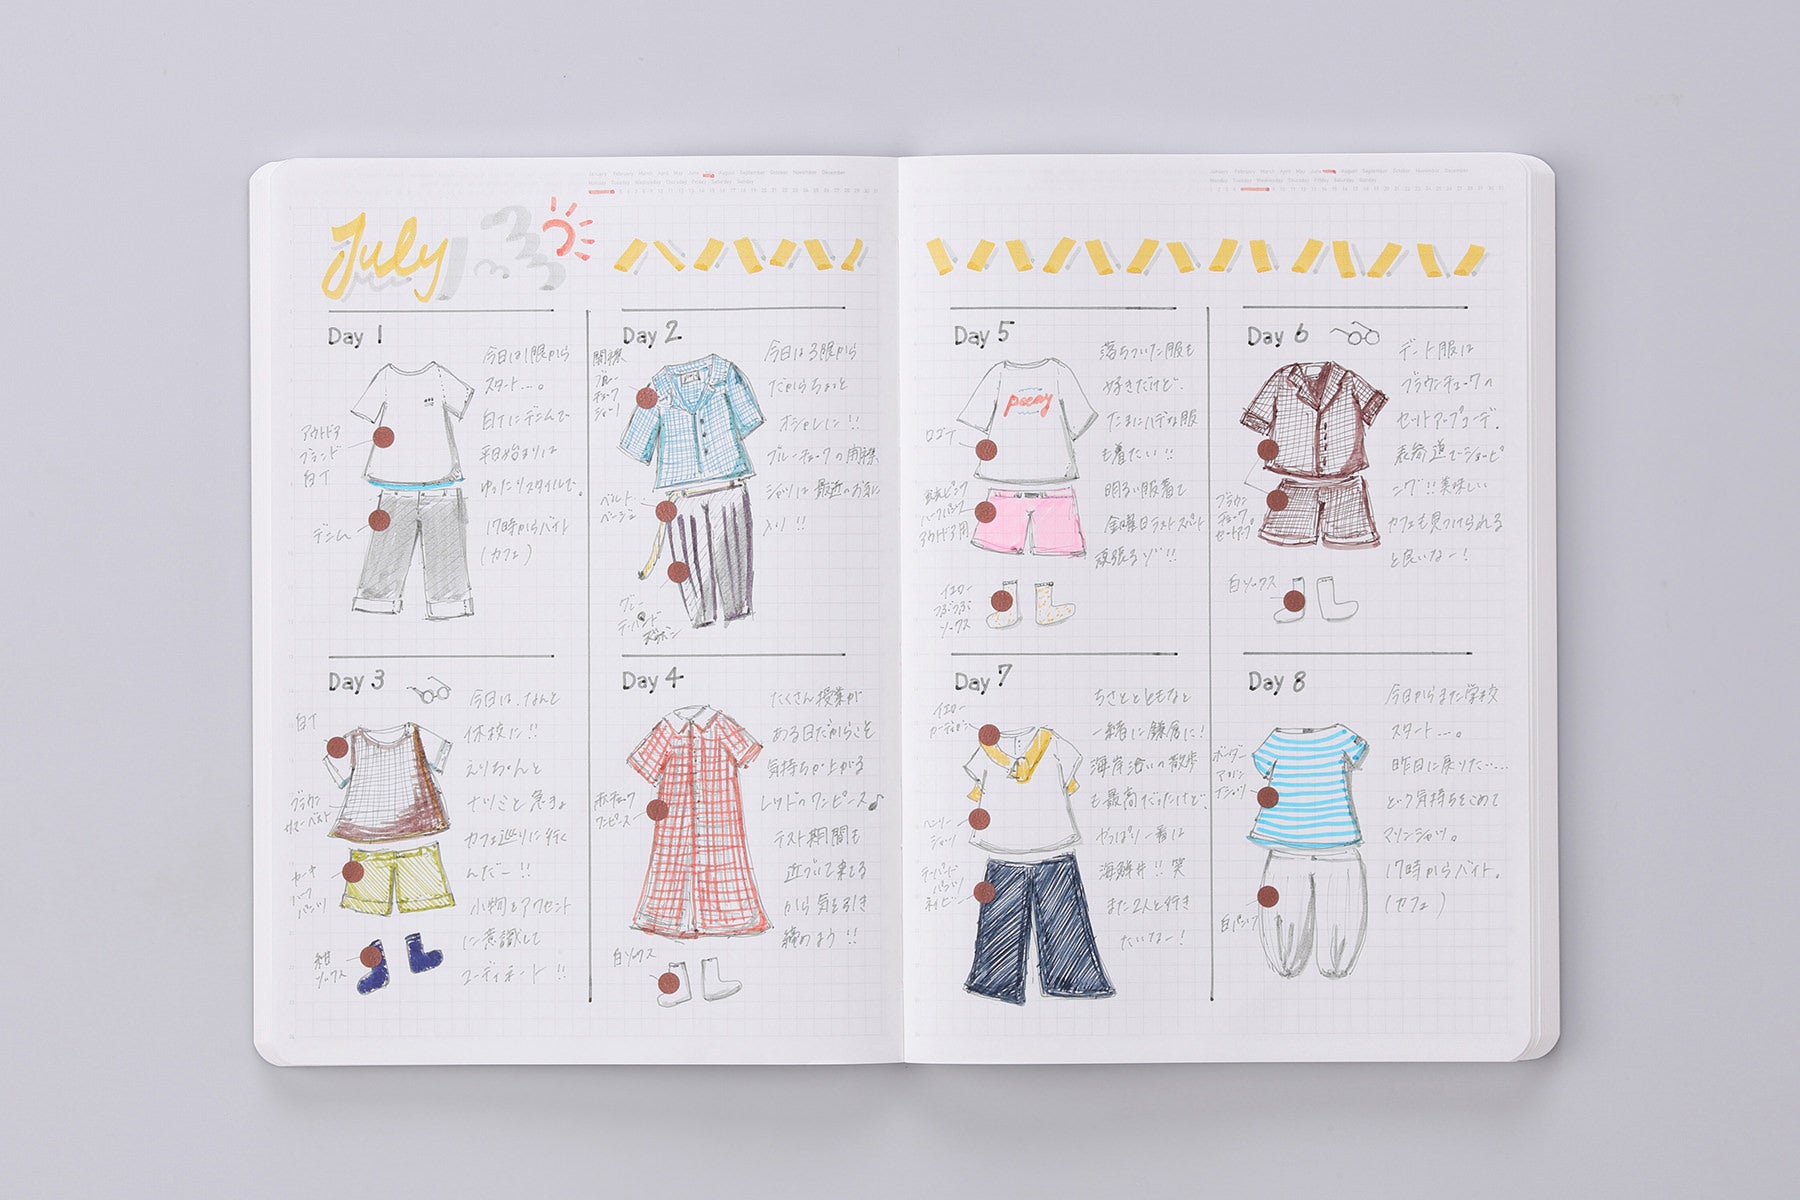 January February March April May June July August September October November December
Monday Tuesday Wednesday Thursday Friday Saturday Sunday
July
Day 1
今日は1限から
スタート…。
白Tにデニムで
平日始まりは
ゆったりスタイルで。
17時からバイト
(カフェ)
アウトドア
ブランド
白T
デニム
Day 2
今日は3限から
だからちょっと
オシャレに!!
ブルーチェックの開襟
シャツは最近のお気に
入り!!
開襟
ブルー
チェック
シャツ
ベルト
ベージュ
グレー
Day 3
今日は、なんと
休校に!!
えりちゃんと
ナツミと急きょ
カフェ巡りに行く
んだー!!
小物をアクセント
に意識して
コーディネート!!
白T
ブラウン
サマーベスト
カーキ
ハーフ
パンツ
紺
ソックス
Day 4
たくさん授業が
ある日だからこそ
気持ちが上がる
レッドのワンピース♪
テスト期間も
近づいて来てる
から気を引き
締めよう!!
赤チェック
ワンピース
白ソックス
January February March April May June July August September October November December
Monday Tuesday Wednesday Thursday Friday Saturday Sunday
Day 5
落ちついた服も
好きだけど、
たまにハデな服
も着たい!!
明るい服着て
金曜日ラストスパート
頑張るゾ!!
poeny
ロゴT
ピンク
ハーフパンツ
アウトドア用
イエロー
つぶつぶ
ソックス
Day 6
デート服は
ブラウンチェックの
セットアップコーデ。
表参道でショッピ
ング!!美味しい
カフェも見つけられる
と良いなー!
ブラウン
チェック
セットアップ
白ソックス
Day 7
ちさとともなと
一緒に鎌倉に!
海岸沿いの散歩
も最高だったけど、
やっぱり一番は
海鮮丼!!笑
また2人と行き
たいなー!
イエロー
カーディガン
ヘンリー
シャツ
テーパード
パンツ
ネイビー
Day 8
今日からまた学校
スタート…。
昨日に戻りたい…
という気持ちをこめて
マリンシャツ。
17時からバイト。
(カフェ)
ボーダー
Tシャツ
白パンツ